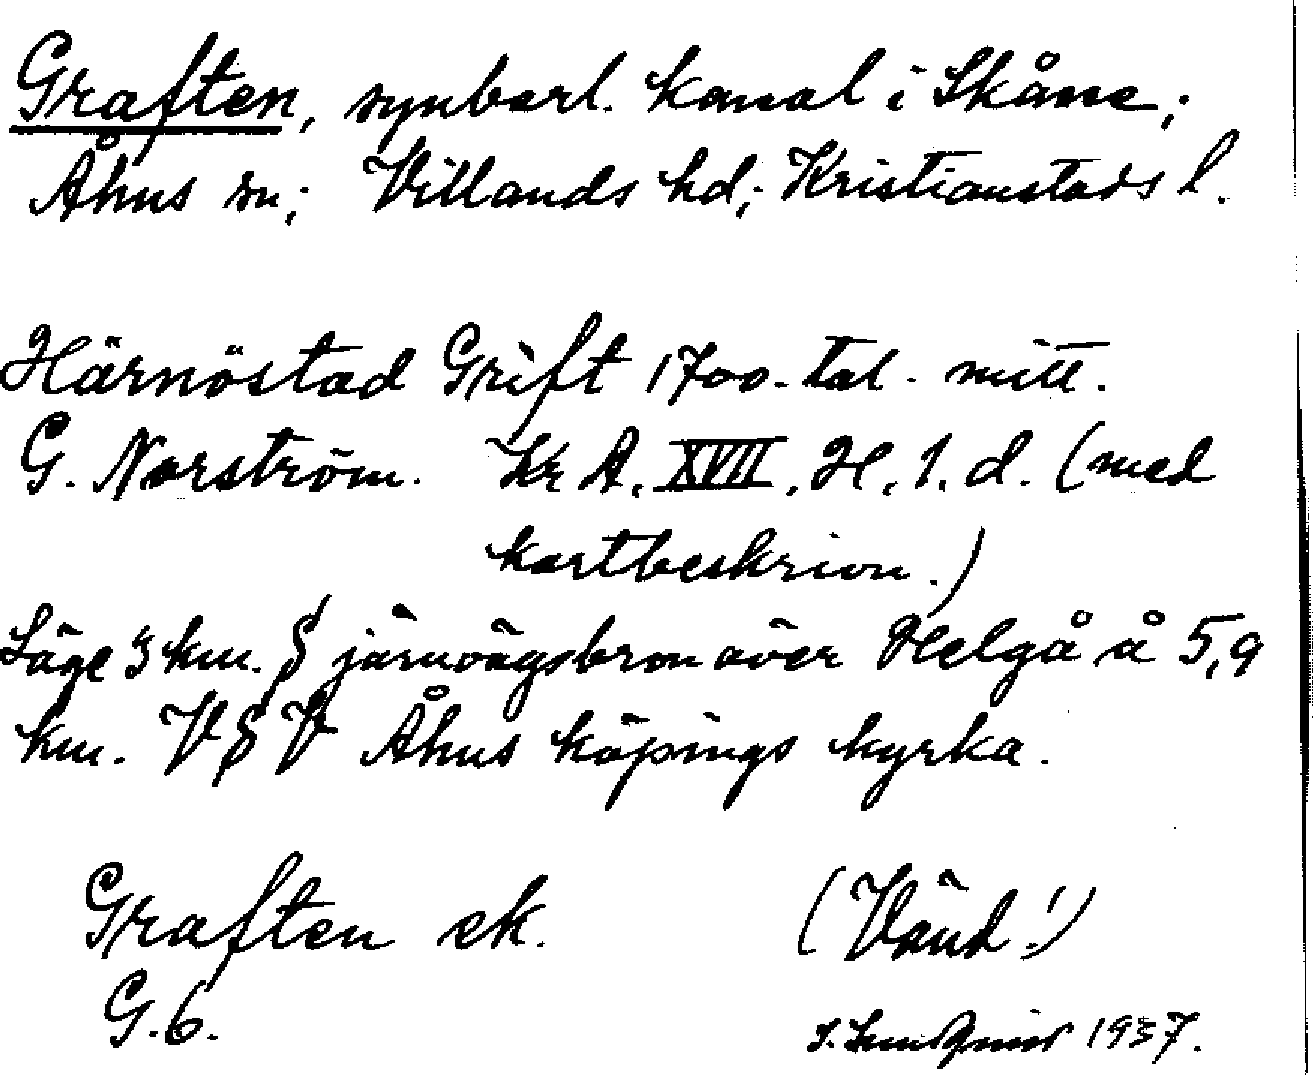 Graften, synbarl. kanal i Skåne;
Åhus sn; Villands hd; Kristianstads l.
Härnöstad Grift 1700-tal. mitt.
G. Norström. Kr A. XVII. H. 1. d. (med
kartbeskrivn.)
Läge 3 km. S järnvägsbron över Helgå å 5,9
km. VSV Åhus köpings kyrka.
Graften ek. (Vänd!)
G.6.
1937.